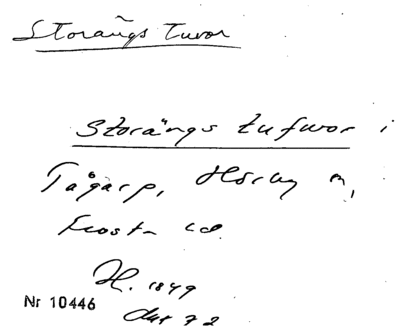 Storängs Tuvor
Storängs tufwor i
Tågarp, Hörby n,
Frosta hd.
H. 1849
Nr 10446
72